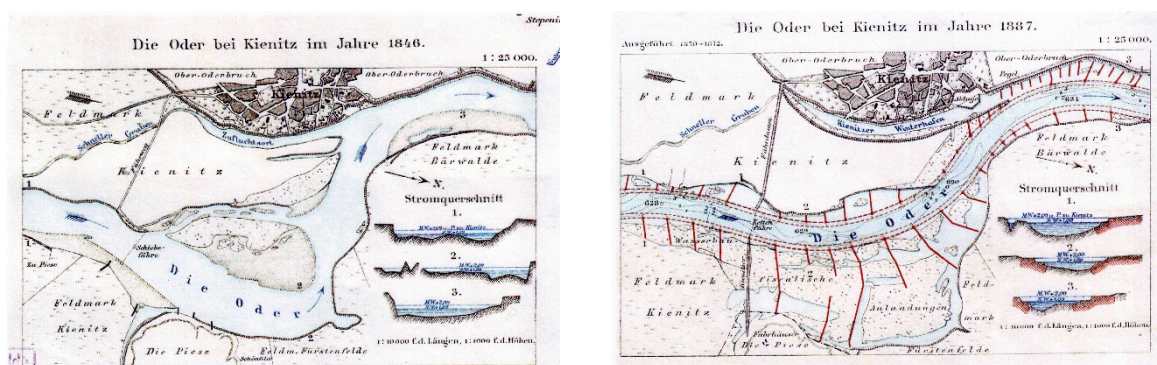 Stepeni
Die Oder bei Kienitz im Jahre 1846.
1 : 25 000.
Ober-Oderbruch
Ober-Oderbruch
Kienitz
Feldmark
Schneller Graben
Zufluchtsort
Kienitz
3
Feldmark
Bärwalde
N.
Stromquerschnitt
1.
2.
3.
1
1
Zu Piese
Schiebe-
fähre
Die Oder
2
2
Feldmark
Kienitz
Die Piese
Feldm. Fürstenfelde
1 : 10000 f.d. Längen, 1 : 1000 f.d. Höhen.
Die Oder bei Kienitz im Jahre 1887.
Ausgeführt 1850-1872.
1 : 25 000.
Ober-Oderbruch
Ober-Oderbruch
Pegel
3
Kienitz
Ablage
Feldmark
Schneller Graben
Kienitzer Winterhafen
Kienitz
631
3
Feldmark
Bärwalde
N.
Stromquerschnitt
1.
2.
3.
1
1
2
630
629
628
Ketten
Fähre
Die Oder
Wasserbau
fiscalische
2
Anlandungen
Feldmark
Kienitz
Feld-
mark
Fährhäuser
Die Piese
Fürstenfelde
1 : 10000 f.d. Längen, 1 : 1000 f.d. Höhen.